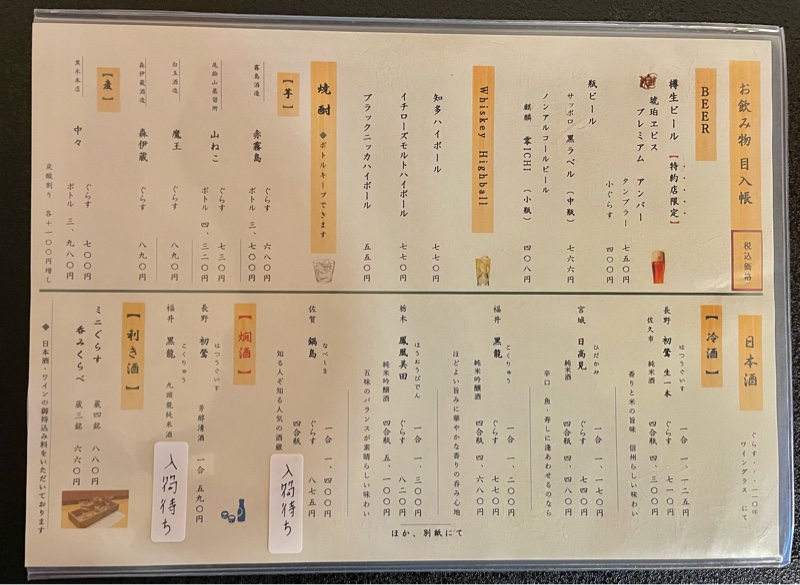 お飲み物 目入帳
税込価格
BEER
樽生ビール 【特約店限定】
琥珀ヱビス
プレミアム アンバー
タンブラー 七五〇円
小ぐらす 四〇〇円
瓶ビール
サッポロ 黒ラベル (中瓶) 七六六円
ノンアルコールビール
麒麟 零ICHI (小瓶) 四〇八円
Whiskey Highball
知多ハイボール 七七〇円
イチローズモルトハイボール 七七〇円
ブラックニッカハイボール 五五〇円
焼酎 ◆ボトルキープできます
【芋】
霧島酒造
赤霧島 ぐらす 六八〇円
ボトル 三、七〇〇円
尾鈴山蒸留所
山ねこ ぐらす 七三〇円
ボトル 四、三二〇円
白玉酒造
魔王 ぐらす 八九〇円
森伊蔵酒造
森伊蔵 ぐらす 八九〇円
【麦】
黒木本店
中々 ぐらす 七〇〇円
ボトル 三、九八〇円
炭酸割り 各+一〇〇円増し
日本酒
ワイングラス にて
【冷酒】
長野 初鶯 生一本 はつうぐいす
佐久市 純米酒
一合 一、一二五円
ぐらす 七一〇円
四合瓶 四、三〇〇円
香りと米の旨味 信州らしい味わい
宮城 日高見 ひだかみ
純米酒
一合 一、一七〇円
ぐらす 七四〇円
四合瓶 四、四八〇円
辛口 魚・寿しに逢あわせるのなら
福井 黒龍 こくりゅう
純米吟醸酒
一合 一、二〇〇円
ぐらす 七七〇円
四合瓶 四、六八〇円
ほどよい旨みに華やかな香りの呑み心地
栃木 鳳凰美田 ほうおうびでん
純米吟醸酒
一合 一、三〇〇円
ぐらす 八二〇円
四合瓶 五、一〇〇円
五味のバランスが素晴らしい味わい
佐賀 鍋島 なべしま
一合 一、四〇〇円
ぐらす 八七五円
四合瓶
知る人ぞ知る人気の酒蔵
入荷待ち
ほか、別紙にて
【燗酒】
長野 初鶯 はつうぐいす
芳醇清酒 一合 五九〇円
福井 黒龍 こくりゅう
九頭龍純米酒
入荷待ち
【利き酒】
ミニぐらす 蔵四銘 八八〇円
呑みくらべ 蔵三銘 六六〇円
◆ 日本酒・ワインの御持込み料をいただいております